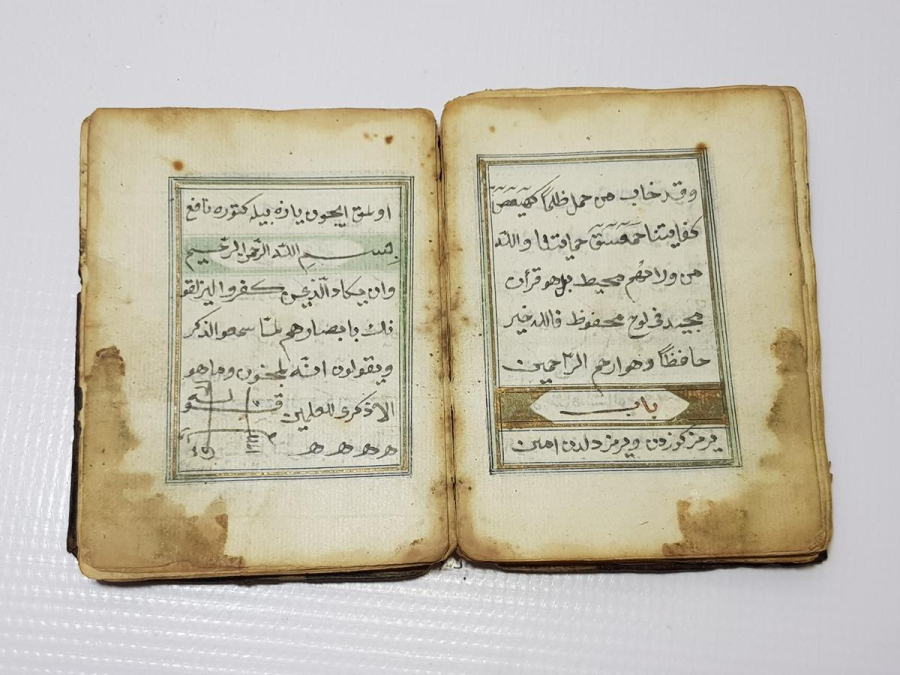 وقد خاب من حمل ظلماً كهيعص
كفايتنا حمعسق حمايتنا والله
من ورائهم محيط بل هو قرآن
مجيد فى لوح محفوظ فالله خير
حافظاً وهو ارحم الراحمين
باب
يرمز كوزدن ويرمز دلدن امين
اولمق ايچون يازه بيله كتوره نافع
بسم الله الرحمن الرحيم
وان يكاد الذين كفروا ليزلقو
نك بابصارهم لمّا سمعو الذكر
ويقولون انّه لمجنون وما هو
الا ذكرى للعلمين
ه ه ه ه